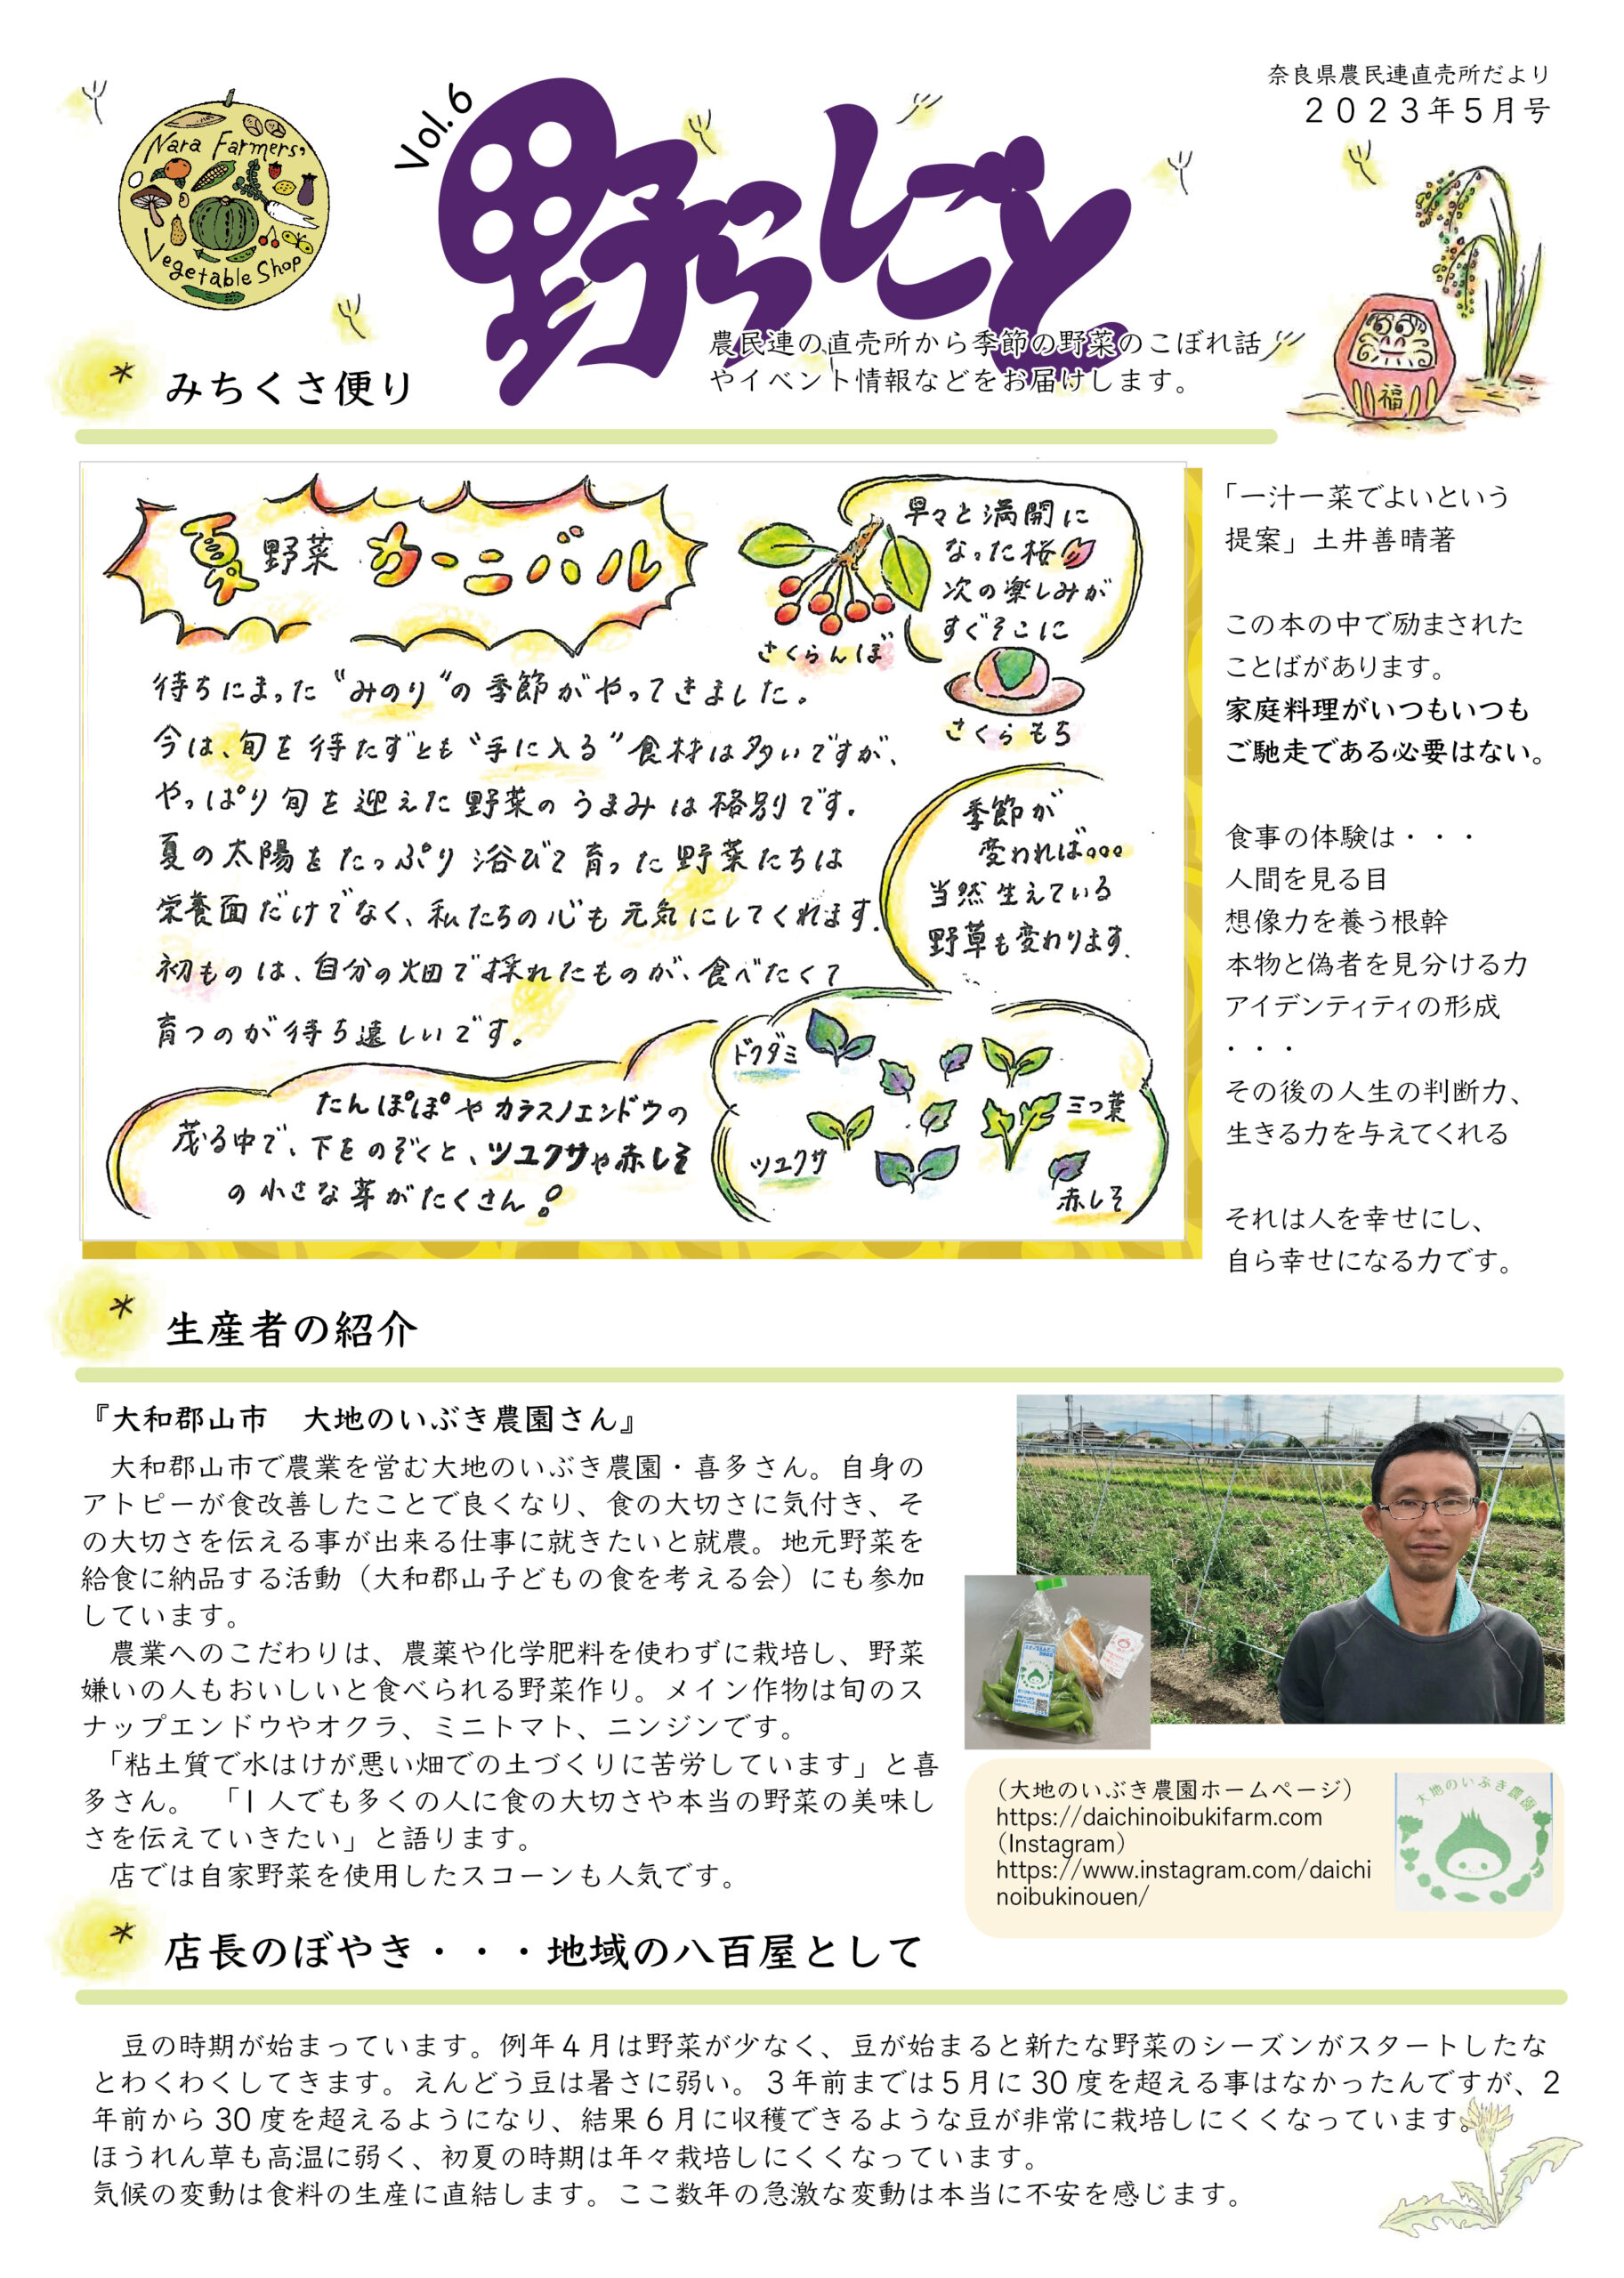 奈良県農民連直売所だより
２０２３年５月号
Nara Farmers'
Vegetable Shop
Vol.6
野らしごと
農民連の直売所から季節の野菜のこぼれ話
やイベント情報などをお届けします。
福
* みちくさ便り
夏野菜カーニバル
待ちにまった〝みのり〟の季節がやってきました。
今は、旬を待たずとも〝手に入る〟食材は多いですが、
やっぱり旬を迎えた野菜のうまみは格別です。
夏の太陽をたっぷり浴びて育った野菜たちは
栄養面だけでなく、私たちの心も元気にしてくれます。
初ものは、自分の畑で採れたものが、食べたくて
育つのが待ち遠しいです。
早々と満開に
なった桜
次の楽しみが
すぐそこに
さくらんぼ
さくらもち
季節が
変われば。。。
当然生えている
野草も変わります。
たんぽぽやカラスノエンドウの
茂る中で、下をのぞくと、ツユクサや赤しそ
の小さな芽がたくさん！
ドクダミ
三つ葉
ツユクサ
赤しそ
「一汁一菜でよいという
提案」土井善晴著
この本の中で励まされた
ことばがあります。
家庭料理がいつもいつも
ご馳走である必要はない。
食事の体験は・・・
人間を見る目
想像力を養う根幹
本物と偽者を見分ける力
アイデンティティの形成
・・・
その後の人生の判断力、
生きる力を与えてくれる
それは人を幸せにし、
自ら幸せになる力です。
* 生産者の紹介
『大和郡山市　大地のいぶき農園さん』
大和郡山市で農業を営む大地のいぶき農園・喜多さん。自身の
アトピーが食改善したことで良くなり、食の大切さに気付き、そ
の大切さを伝える事が出来る仕事に就きたいと就農。地元野菜を
給食に納品する活動（大和郡山子どもの食を考える会）にも参加
しています。
農業へのこだわりは、農薬や化学肥料を使わずに栽培し、野菜
嫌いの人もおいしいと食べられる野菜作り。メイン作物は旬のス
ナップエンドウやオクラ、ミニトマト、ニンジンです。
「粘土質で水はけが悪い畑での土づくりに苦労しています」と喜
多さん。　「１人でも多くの人に食の大切さや本当の野菜の美味し
さを伝えていきたい」と語ります。
店では自家野菜を使用したスコーンも人気です。
（大地のいぶき農園ホームページ）
https://daichinoibukifarm.com
（Instagram）
https://www.instagram.com/daichi
noibukinouen/
大地のいぶき農園
* 店長のぼやき・・・地域の八百屋として
豆の時期が始まっています。例年４月は野菜が少なく、豆が始まると新たな野菜のシーズンがスタートしたな
とわくわくしてきます。えんどう豆は暑さに弱い。３年前までは５月に 30 度を超える事はなかったんですが、2
年前から 30 度を超えるようになり、結果６月に収穫できるような豆が非常に栽培しにくくなっています。
ほうれん草も高温に弱く、初夏の時期は年々栽培しにくくなっています。
気候の変動は食料の生産に直結します。ここ数年の急激な変動は本当に不安を感じます。